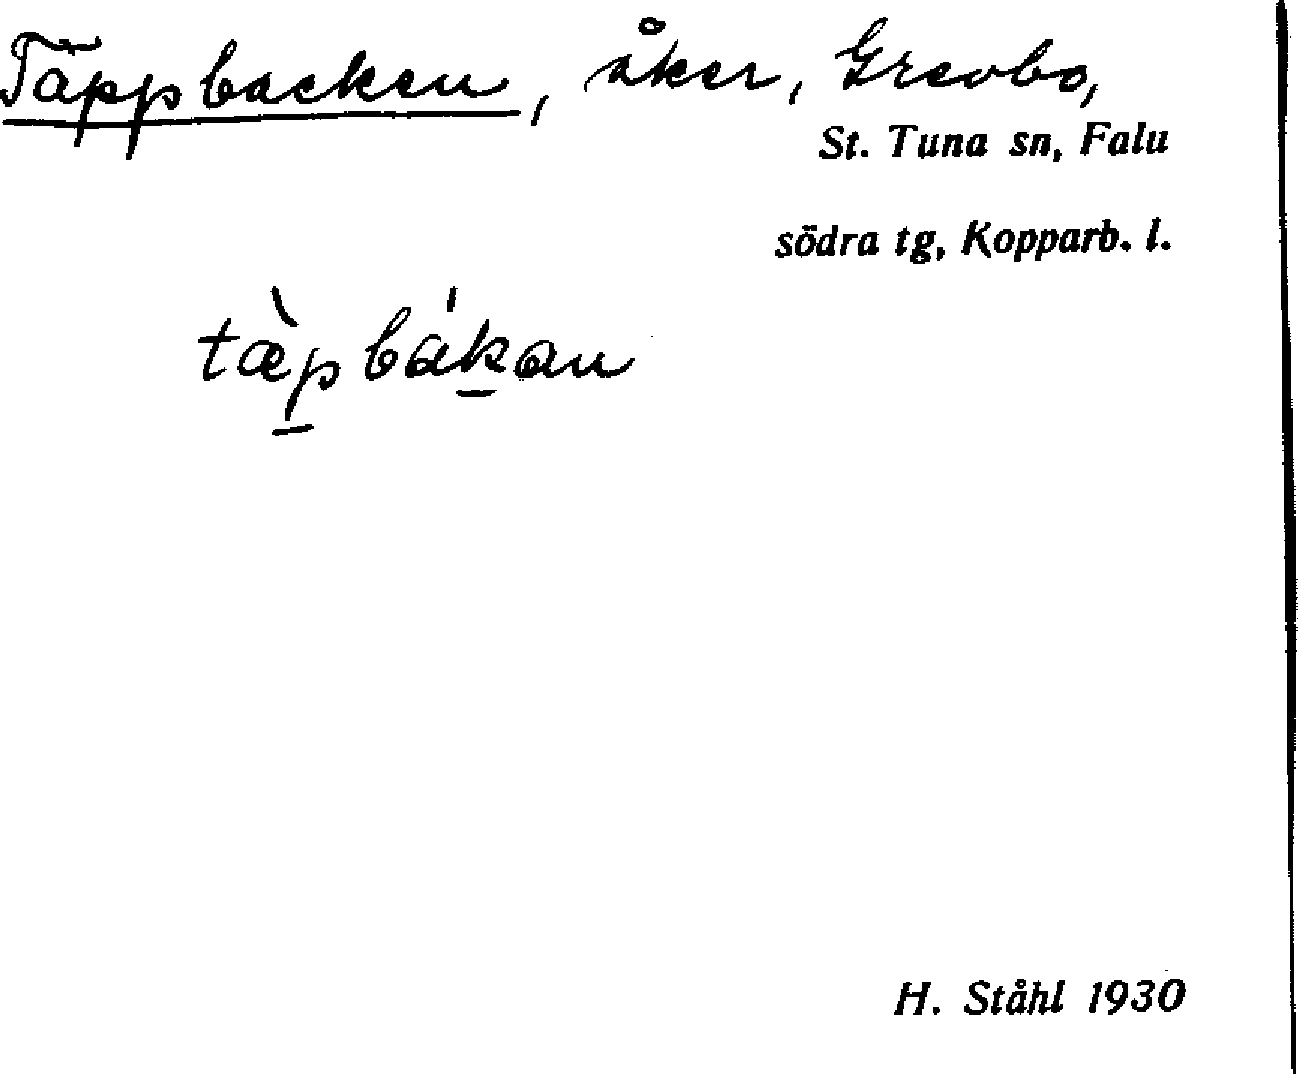 Täppbacken, åker, Grevbo,
St. Tuna sn, Falu
södra tg, Kopparb. l.
tæ̀p̲bák̲an
H. Ståhl 1930